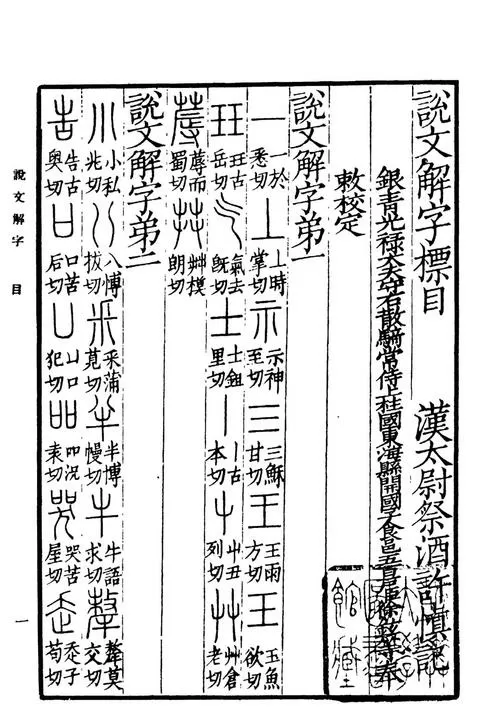 說文解字標目　漢太尉祭酒許愼記
銀青光祿大夫守右散騎常侍上柱國東海縣開國子食邑五百戶臣徐鉉等奉
敕校定
說文解字第一
一 一於悉切 丄 丄時掌切 示 示神至切 三 三穌甘切 王 王雨方切 玉 玉魚欲切
玨 玨古岳切 气 氣去旣切 士 士鉏里切 丨 丨古本切 屮 屮丑列切 艸 艸倉老切
蓐 蓐而蜀切 茻 茻模朗切
說文解字第二
小 小私兆切 八 八博拔切 釆 釆蒲莧切 半 半博慢切 牛 牛語求切 犛 犛莫交切
告 告古奧切 口 口苦后切 凵 凵口犯切 吅 吅况袁切 哭 哭苦屋切 走 走子苟切
說文解字　目
一
館藏